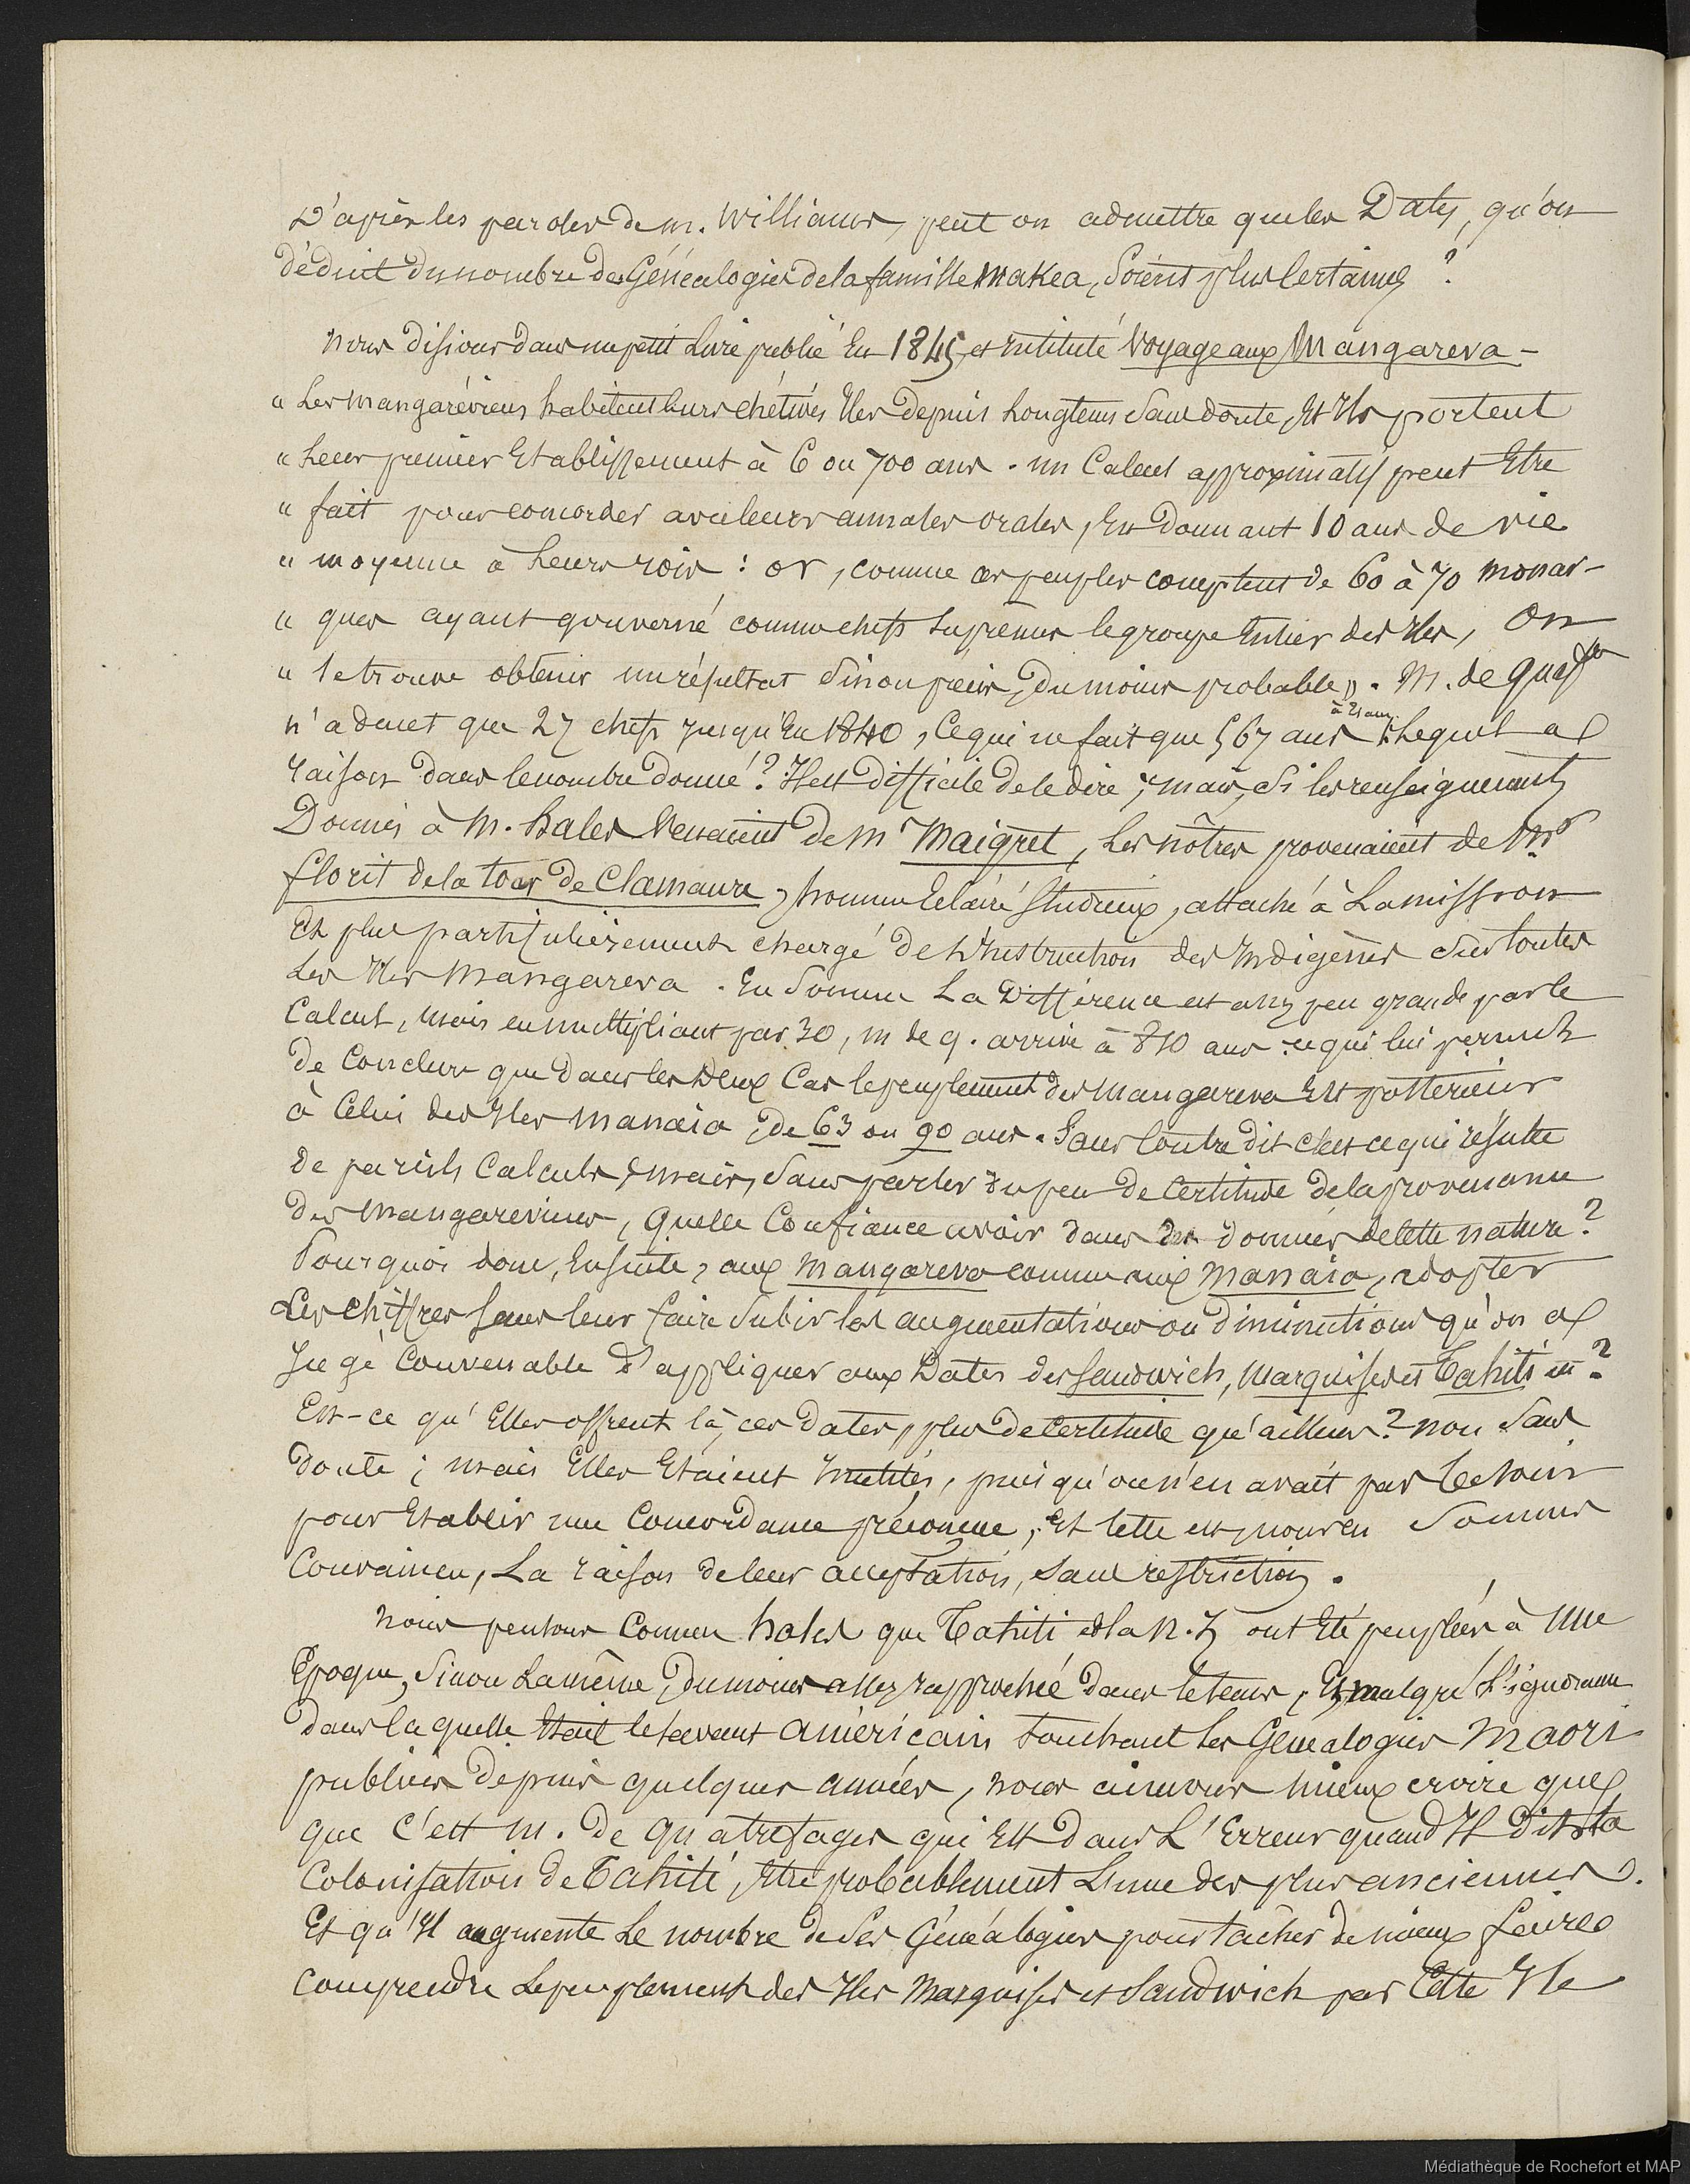 D'après les paroles de m. Williams, peut on admettre que les Dates, qu'on
déduit du nombre des Généalogies de la famille Makea, Soient plus Certaines ?
Nous disions dans un petit Livre publié En 1845, et intitulé Voyage aux Mangareva –
« Les mangaréviens habitent leurs chétives Iles depuis Longtems Sans doute, Et Ils portent
« Leur premier Etablissement à 6 ou 700 ans. un Calcul approximatif peut Etre
« fait pour concorder avec leurs annales orales, En Donnant 10 ans de vie
« moyenne à Leurs rois : or, comme ces peuples comptent de 60 à 70 monar-
« ques ayant gouverné comme chefs Suprêmes le groupe Entier des Iles, On
« Se trouve obtenir un résultat Sinon précis, du moins probable ». M. de quatref
n'admet que 27 chefs jusqu'En 1840, Ce qui ne fait que 567 ans à 21 ans. Lequel a
raison dans le nombre donné ? Il est difficile de le dire ; mais, Si les renseignements
Donnés à M. hales Venaient de Mr Maigret, Les nôtres provenaient de Mr
florit de la tour de Clamouse, homme Eclairé Studieux, attaché à La mission
Et plus particulièrement chargé de L'Instruction des Indigènes Sur toutes
Les Iles Mangareva. En Somme La Différence est assez peu grande par le
Calcul, Mais en multipliant par 30, m de q. arrive à 810 ans ce qui lui permet
de Conclure que dans les Deux Cas le peuplement des Mangareva Est postérieur
à Celui des Iles Manaia, de 63 ou 90 ans. Sans Contredit c'est ce qui résulte
de pareils Calculs ; mais, Sans parler du peu de Certitude de la provenance
des Mangaréviens, Quelle Confiance avoir dans des données de cette nature ?
Pourquoi donc, Ensuite, aux Mangareva comme aux Manaia, adopter
Les Chiffres Sans leur faire Subir les augmentations ou diminutions qu'on a
Jugé Convenable d'appliquer aux Dates des Sandwich, Marquises et Tahiti etc ?
Est-ce qu'Elles offrent là, ces dates, plus de Certitude qu'ailleurs ? non Sans
doute ; mais Elles Etaient Inutiles, puisqu'on n'en avait pas besoin
pour Etablir une Concordance préconçue ; Et Cette est, nous en Sommes
Convaincu, La raison de leur acceptation, Sans restriction.
Nous pensons Comme hales que Tahiti et la N. Z ont Eté peuplées à Une
Epoque, Sinon La même, Du moins assez rapprochée dans le tems, Et, malgré L'ignorance
dans laquelle Etait le Savant américain touchant Les Généalogies Maori
publiées depuis quelques années, nous aimons mieux croire que
que C'est M. De Quatrefages qui Est Dans L'Erreur quand Il Dit La
Colonisation De Tahiti, Etre probablement L'une des plus anciennes.
Et qu'Il augmente Le nombre de Ses Généalogies pour tâcher de mieux faire
comprendre Le peuplement des Iles Marquises et Sandwich par Cette Ile
Médiathèque de Rochefort et MAP